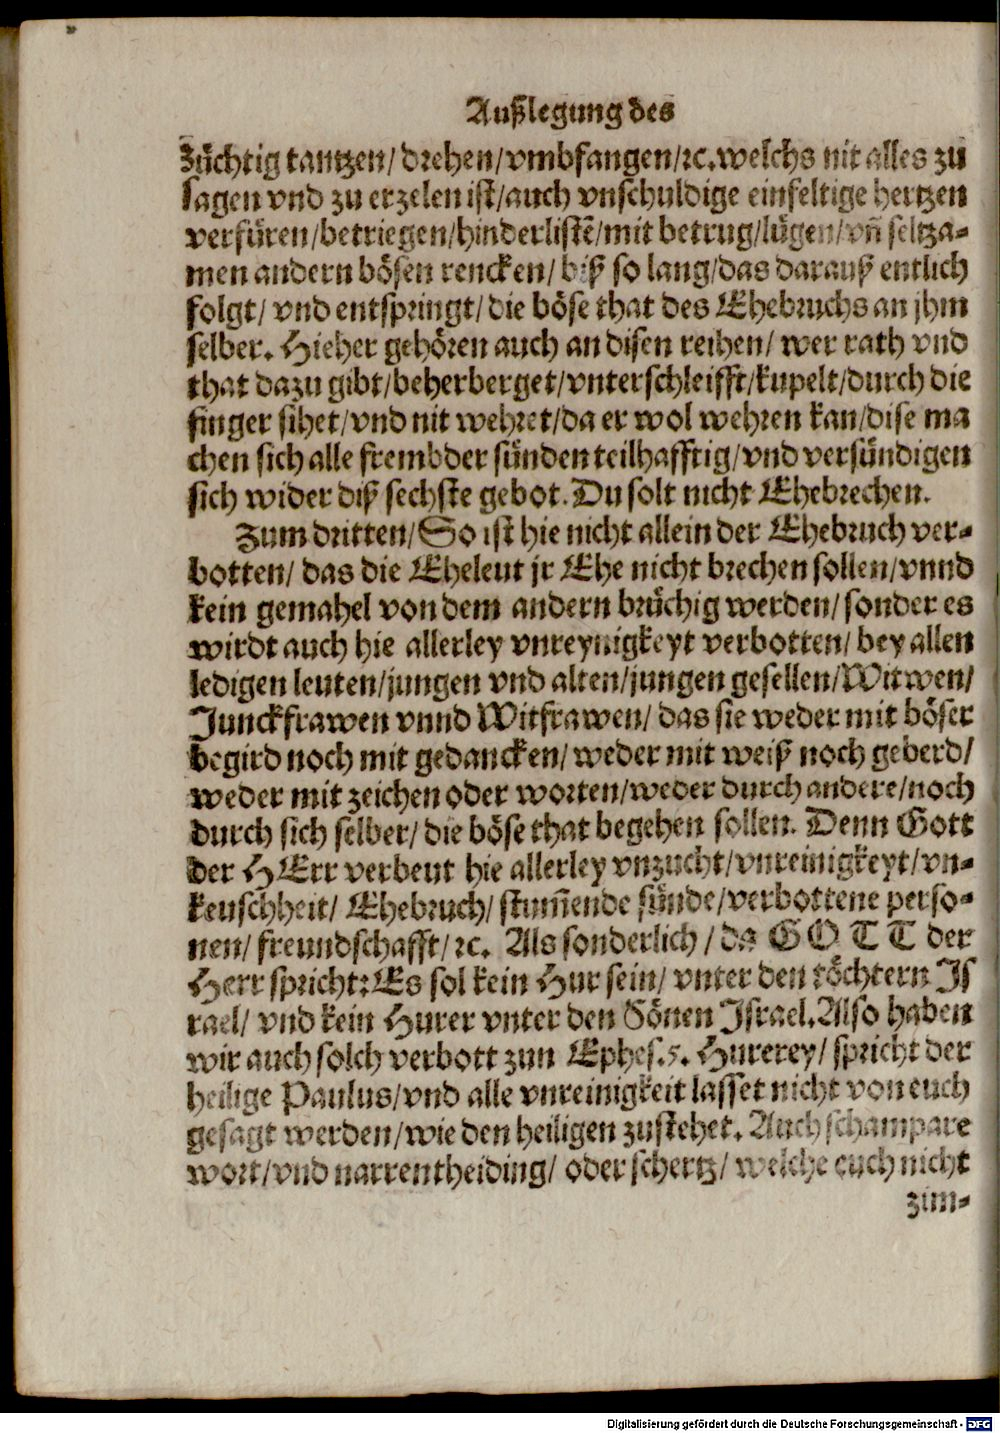 Außlegung des
züchtig tantzen/ drehen/ vmbfangen/ ꝛc. welchs nit alles zu
sagen vnd zu erzelen ist/ auch vnschuldige einfeltige hertzen
verfüren/ betriegen/ hinderlistẽ/ mit betrug/ lügen/ vñ seltza-
men andern bösen rencken/ biß so lang/ das darauß entlich
folgt/ vnd entspringt/ die böse that des Ehebruchs an jhm
selber. Hieher gehören auch an disen reihen/ wer rath vnd
that dazu gibt/ beherberget/ vnterschleifft/ kupelt/ durch die
finger sihet/ vnd nit wehret/ da er wol wehren kan/ dise ma
chen sich alle frembder sünden teilhafftig/ vnd versündigen
sich wider diß sechste gebot. Du solt nicht Ehebrechen.
Zum dritten/ So ist hie nicht allein der Ehebruch ver-
botten/ das die Eheleut jr Ehe nicht brechen sollen/ vnnd
kein gemahel von dem andern brüchig werden/ sonder es
wirdt auch hie allerley vnreynigkeyt verbotten/ bey allen
ledigen leuten/ jungen vnd alten/ jungen gesellen/ Witwen/
Junckfrawen vnnd Witfrawen/ das sie weder mit böser
begird noch mit gedancken/ weder mit weiß noch geberd/
weder mit zeichen oder worten/ weder durch andere/ noch
durch sich selber/ die böse that begehen sollen. Denn Gott
der HErr verbeut hie allerley vnzucht/ vnreinigkeyt/ vn-
keuschheit/ Ehebruch/ stum̃ende sünde/ verbottene perso-
nen/ freundschafft/ ꝛc. Als sonderlich/ da GOTT der
Herr spricht: Es sol kein Hur sein/ vnter den töchtern Is
rael/ vnd kein Hurer vnter den Sönen Israel. Also haben
wir auch solch verbott zun Ephes. 5. Hurerey/ spricht der
heilige Paulus/ vnd alle vnreinigkeit lasset nicht von euch
gesagt werden/ wie den heiligen zustehet. Auch schampare
wort/ vnd narrentheiding/ oder schertz/ welche euch nicht
zim-
Digitalisierung gefördert durch die Deutsche Forschungsgemeinschaft - DFG